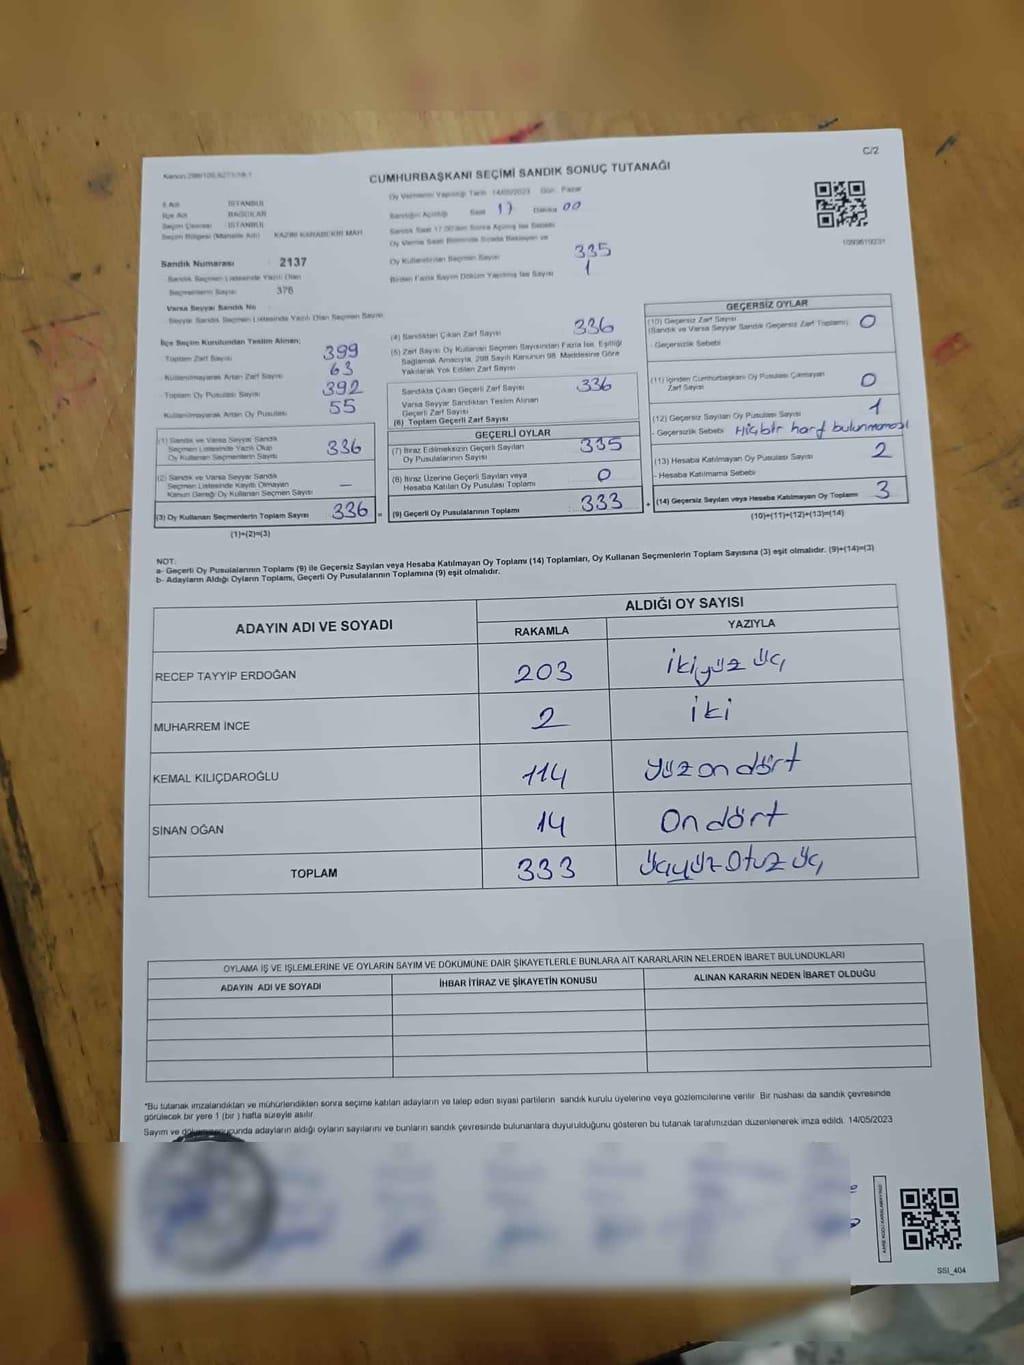 C/2
CUMHURBAŞKANI SEÇİMİ SANDIK SONUÇ TUTANAĞI
Oy Vermenin Yapıldığı Tarih 14/05/2023 Gün: Pazar
İl Adı İSTANBUL
İlçe Adı BAĞCILAR
Seçim Çevresi İSTANBUL
Seçim Bölgesi (Mahalle Adı) KAZIM KARABEKİR MAH.
Sandığın Açıldığı Saat 17 Dakika 00
Oy Kullandırılan Seçmen Sayısı 335
Birden Fazla Sayım Döküm Yapılmış İse Sayısı 1
Sandık Numarası 2137
Sandık Seçmen Listesinde Yazılı Olan
Seçmenlerin Sayısı 376
Varsa Seyyar Sandık No
Seyyar Sandık Seçmen Listesinde Yazılı Olan Seçmen Sayısı
İlçe Seçim Kurulundan Teslim Alınan;
Toplam Zarf Sayısı 399
Kullanılmayarak Artan Zarf Sayısı 63
Toplam Oy Pusulası Sayısı 392
Kullanılmayarak Artan Oy Pusulası 55
(1) Sandık ve Varsa Seyyar Sandık
Seçmen Listesinde Yazılı Olup
Oy Kullanan Seçmenlerin Sayısı 336
(2) Sandık ve Varsa Seyyar Sandık
Seçmen Listesinde Kayıtlı Olmayan
Kanun Gereği Oy Kullanan Seçmen Sayısı —
(3) Oy Kullanan Seçmenlerin Toplam Sayısı 336 =
(1)+(2)=(3)
(4) Sandıktan Çıkan Zarf Sayısı 336
(5) Zarf Sayısı Oy Kullanan Seçmen Sayısından Fazla İse, Eşitliği
Sağlamak Amacıyla, 298 Sayılı Kanunun 98. Maddesine Göre
Yakılarak Yok Edilen Zarf Sayısı
Sandıkta Çıkan Geçerli Zarf Sayısı 336
Varsa Seyyar Sandıktan Teslim Alınan
Geçerli Zarf Sayısı
(6) Toplam Geçerli Zarf Sayısı
GEÇERLİ OYLAR
(7) İtiraz Edilmeksizin Geçerli Sayılan
Oy Pusulalarının Sayısı 335
(8) İtiraz Üzerine Geçerli Sayılan veya
Hesaba Katılan Oy Pusulası Toplamı 0
(9) Geçerli Oy Pusulalarının Toplamı 333 +
GEÇERSİZ OYLAR
(10) Geçersiz Zarf Sayısı
(Sandık ve Varsa Seyyar Sandık Geçersiz Zarf Toplamı) 0
- Geçersizlik Sebebi
(11) İçinden Cumhurbaşkanı Oy Pusulası Çıkmayan
Zarf Sayısı 0
(12) Geçersiz Sayılan Oy Pusulası Sayısı 1
- Geçersizlik Sebebi Hiçbir harf bulunmaması
(13) Hesaba Katılmayan Oy Pusulası Sayısı 2
- Hesaba Katılmama Sebebi
(14) Geçersiz Sayılan veya Hesaba Katılmayan Oy Toplamı 3
(10)+(11)+(12)+(13)=(14)
NOT:
a- Geçerli Oy Pusulalarının Toplamı (9) ile Geçersiz Sayılan veya Hesaba Katılmayan Oy Toplamı (14) Toplamları, Oy Kullanan Seçmenlerin Toplam Sayısına (3) eşit olmalıdır. (9)+(14)=(3)
b- Adayların Aldığı Oyların Toplamı, Geçerli Oy Pusulalarının Toplamına (9) eşit olmalıdır.
ADAYIN ADI VE SOYADI ALDIĞI OY SAYISI
RAKAMLA YAZIYLA
RECEP TAYYİP ERDOĞAN 203 ikiyüz üç
MUHARREM İNCE 2 iki
KEMAL KILIÇDAROĞLU 114 yüzondört
SİNAN OĞAN 14 On dört
TOPLAM 333 üçyüz otuz üç
OYLAMA İŞ VE İŞLEMLERİNE VE OYLARIN SAYIM VE DÖKÜMÜNE DAİR ŞİKAYETLERLE BUNLARA AİT KARARLARIN NELERDEN İBARET BULUNDUKLARI
ADAYIN ADI VE SOYADI İHBAR İTİRAZ VE ŞİKAYETİN KONUSU ALINAN KARARIN NEDEN İBARET OLDUĞU
*Bu tutanak imzalandıktan ve mühürlendikten sonra seçime katılan adayların ve talep eden siyasi partilerin sandık kurulu üyelerine veya gözlemcilerine verilir. Bir nüshası da sandık çevresinde
görülecek bir yere 1 (bir ) hafta süreyle asılır.
Sayım ve adayların aldığı oyların sayılarını ve bunların sandık çevresinde bulunanlara duyurulduğunu gösteren bu tutanak tarafımızdan düzenlenerek imza edildi. 14/05/2023
SSI_404